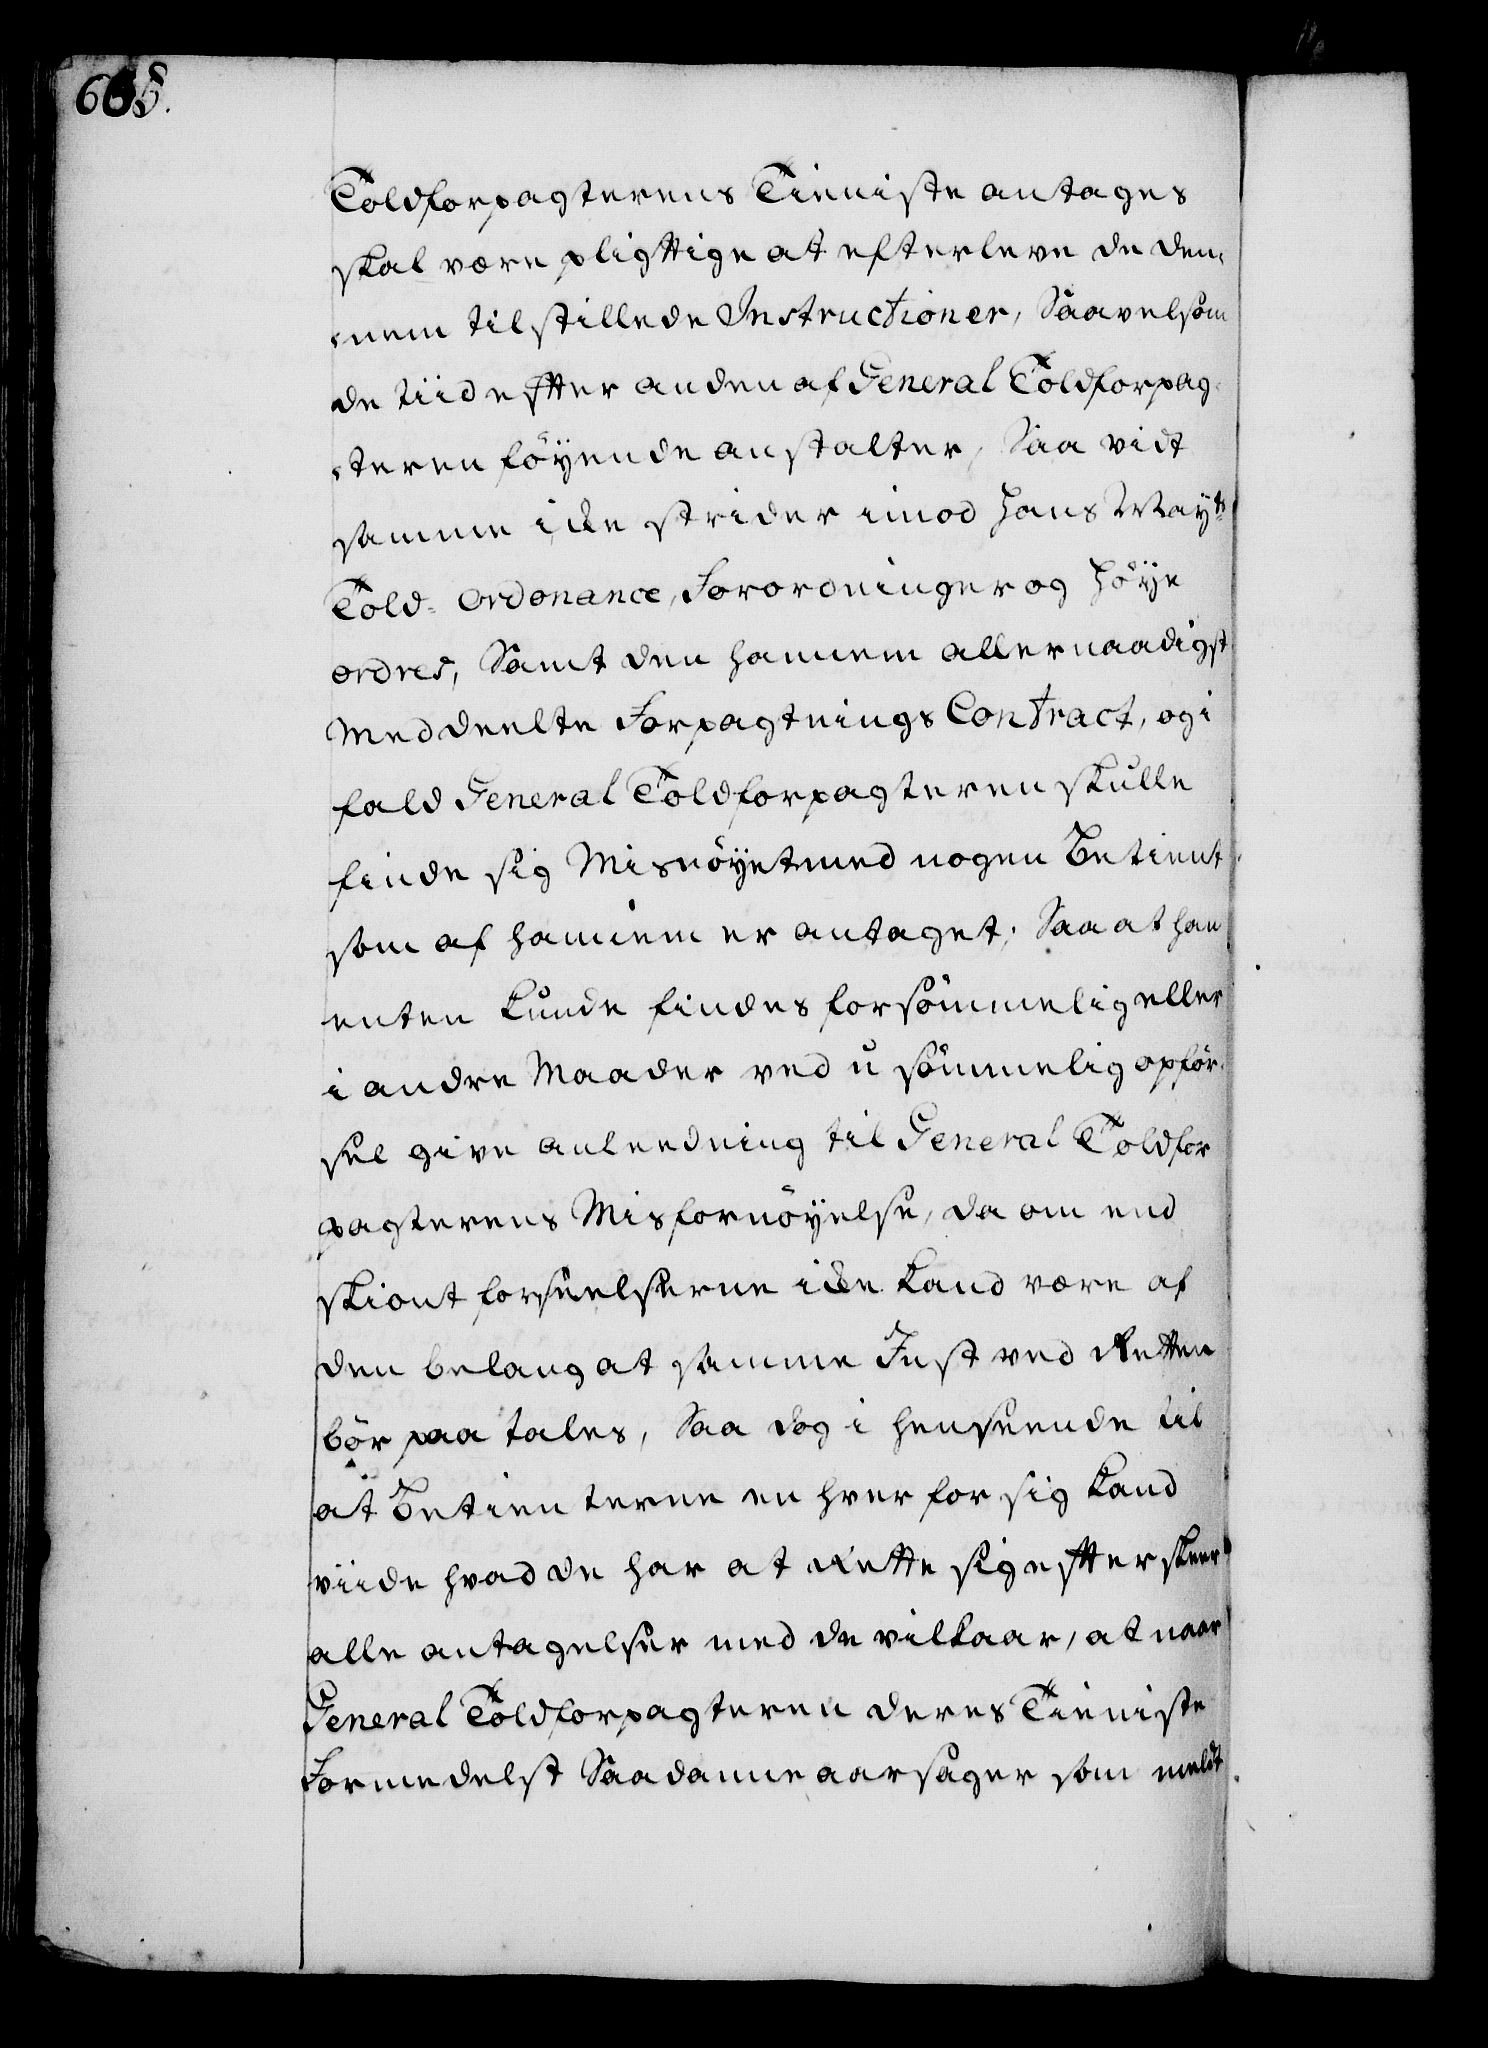 Toldforpagterens Tieniste antages
skal være pligttige at efterleve de den¬
¬nem tilstillede Instructioner, Saavelsom
de tiid efter anden af General Toldforpag¬
¬teren föyende anstalter, Saa vidt
samme icke strider imod Hans May.ts
Told- ordonance, Forordninger og Höye
ordres, Samt den hannem allernaadigst
Meddeelte Forpagtnings Contract, og i
fald General Toldforpagteren skulle
finde sig Misnöyet med nogen Betient
som af hannem er antaget; Saa at han
enten kunde findes forsömmelig eller
i andre Maader ved usömmelig opför¬
sel give anleedning til General Toldfor
pagterens Misfornöyelse, da om end
skiont forseelserne icke kand være af
den belang at samme Just ved Retten
bör paa tales, Saa dog i henseende til
at Betienterne en hver for sig kand
viide hvad de har at Rette sig efter skeer
alle antagelser med de vilkaar, at naar
General Toldforpagteren deres Tieniste
Formedelst Saadanne aarsager som meldt